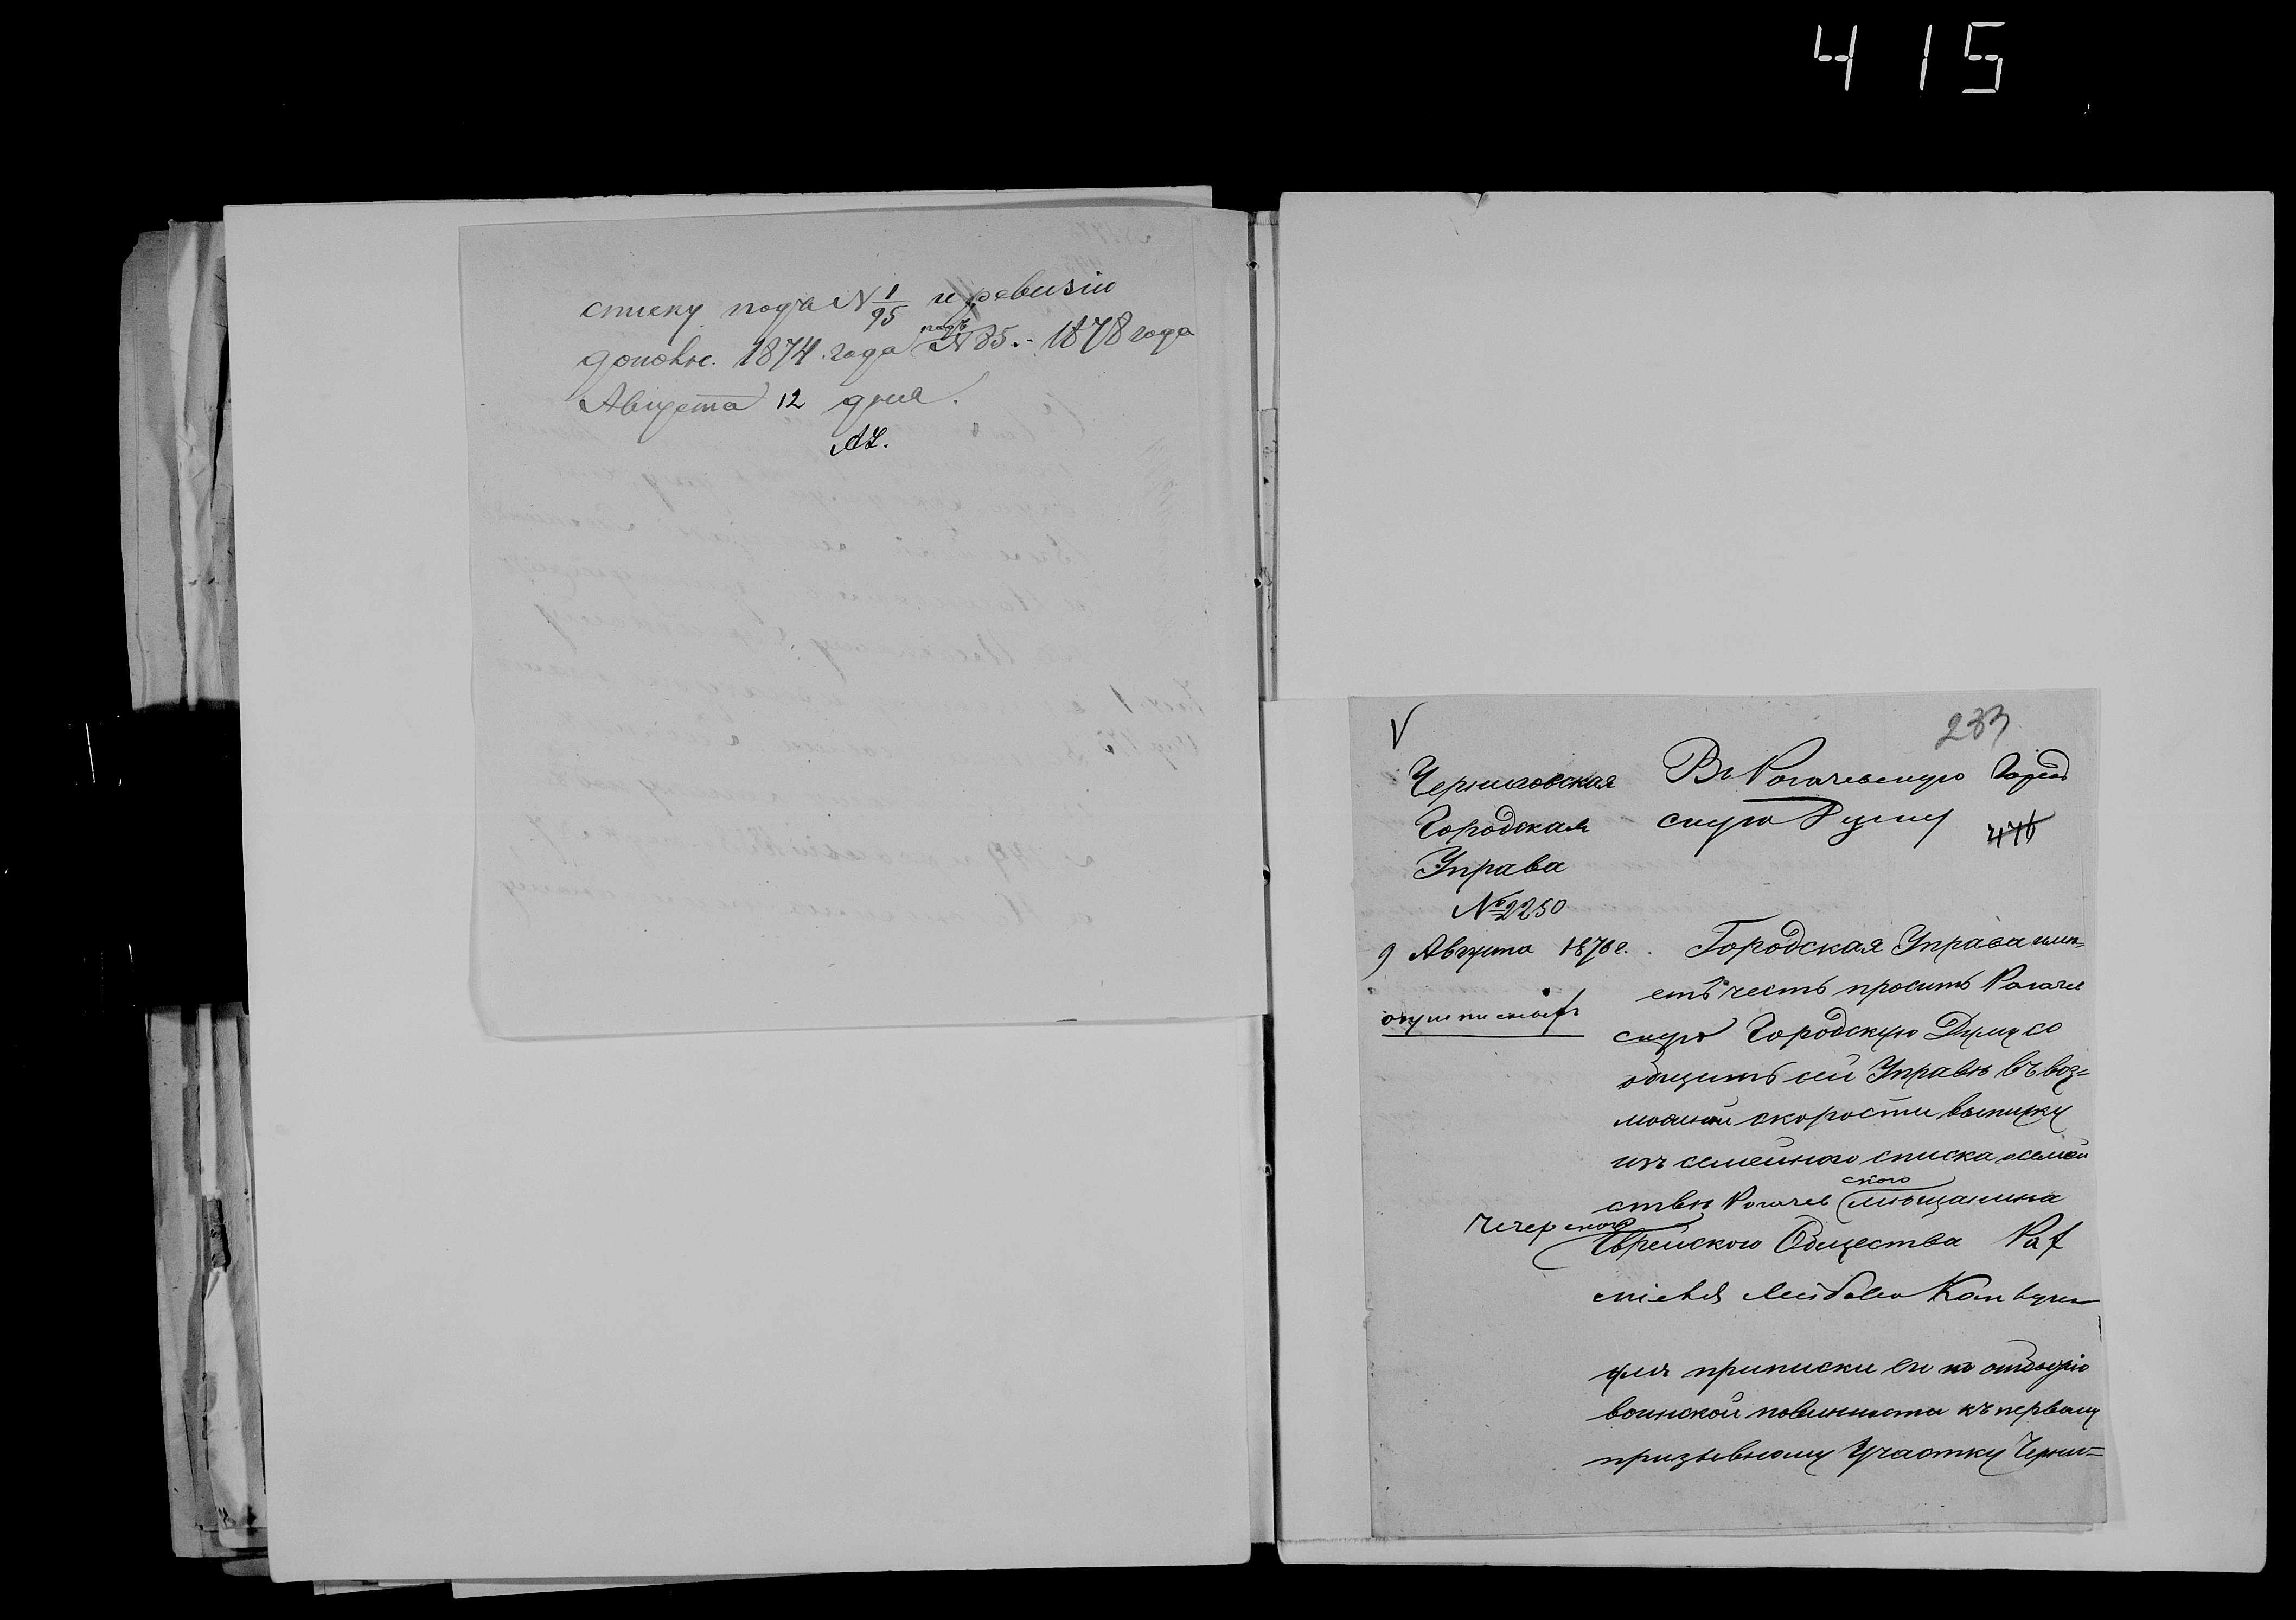 415
списку подъ № 1/95 и ревизіи
дополн. 1874 года подъ № 85.- 1878 года
Августа 12 дня.
233
Черниговская
Городская
Управа
№ 2250
9 Августа 1878 г.
Въ Рогачевскую Город
скую Думу
476
Городская Управа имѣ=
етъ честь просить Рогаче
скую Городскую Думу со
общить сей Управѣ въ воз=
можной скорости выписку
изъ семейнаго списка о семей
ствѣ Рогачев ского мѣщанина
Чечерского Еврейского Общества
для приписки его по отбытію
воинской повинности къ первому
призывному Участку Черни=